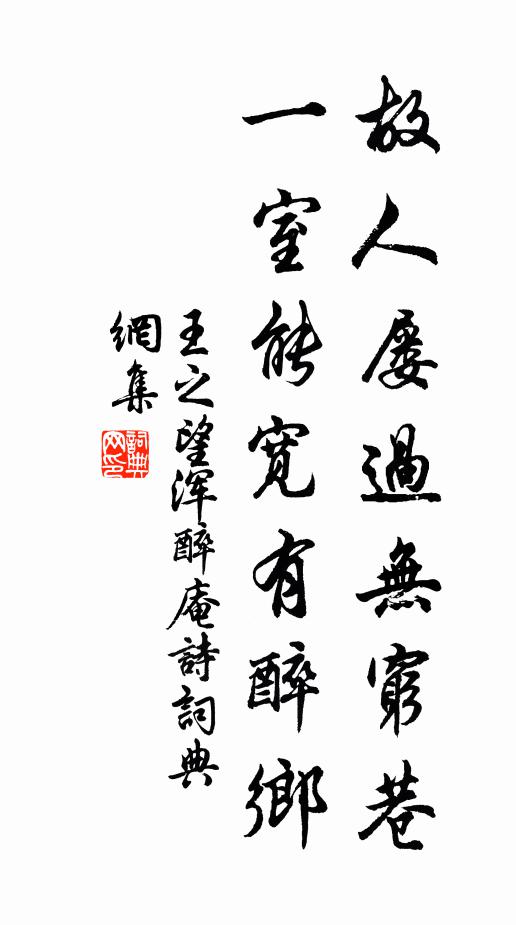 故人屢過無窮巷
一室能寬有醉鄉
王之望渾醉庵詩詞典
網集
詞典網印